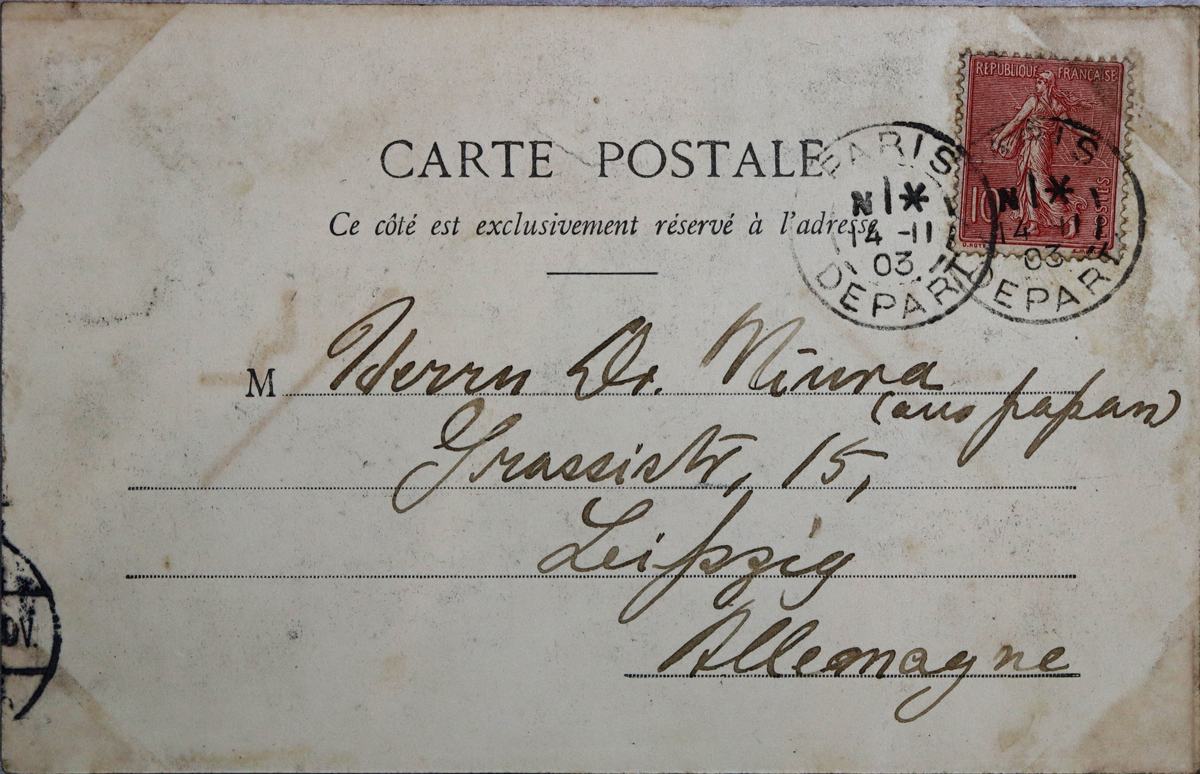 REPUBLIQUE FRANÇAISE
10
CARTE POSTALE
Ce côté est exclusivement réservé à l'adresse
PARIS
N 1 *
14 -11
03
DEPART
PARIS
N 1 *
14 -11
03
DEPART
M Herrn Dr. Miura
(aus Japan)
Grassistr, 15,
Leipzig
Allemagne
OV.